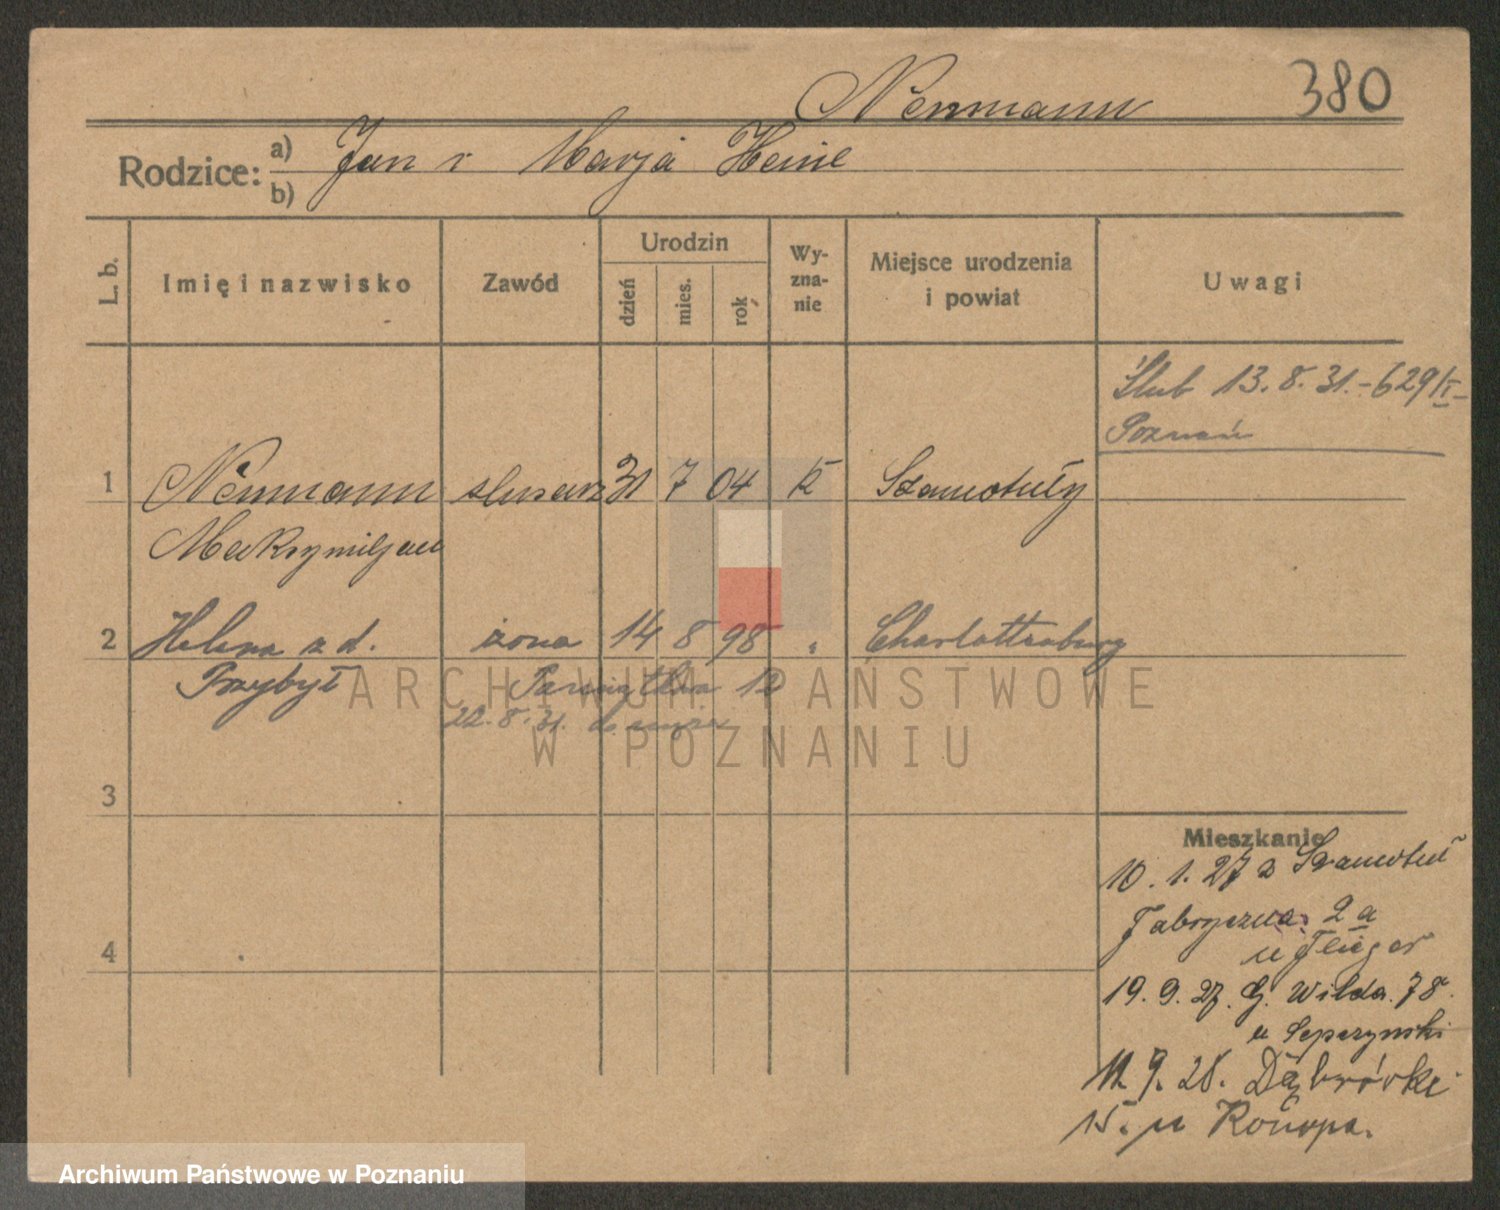 Neumann 380
Rodzice: a) Jan i Marja Heine
b)
L. b. Imię i nazwisko Zawód Urodzin dzień mies. rok Wy-zna-nie Miejsce urodzenia i powiat Uwagi
Ślub 13.8.31.-629/II-
Poznań
1 Neumann ślusarz 31 7 04 k Szamotuły
Maksymiljan
2 Helena z d. żona 14 8 98 " Charlottenburg
Przybył
22.8.31. do męża
3
4
Mieszkanie
10.1.27 z Szamotuł
Fabryczna 2a
u Flieger
19.9.27. G. Wilda. 78.
u
11.9.28. Dąbrówki
15. u Konopa.
ARCHIWUM PAŃSTWOWE
W POZNANIU
Archiwum Państwowe w Poznaniu